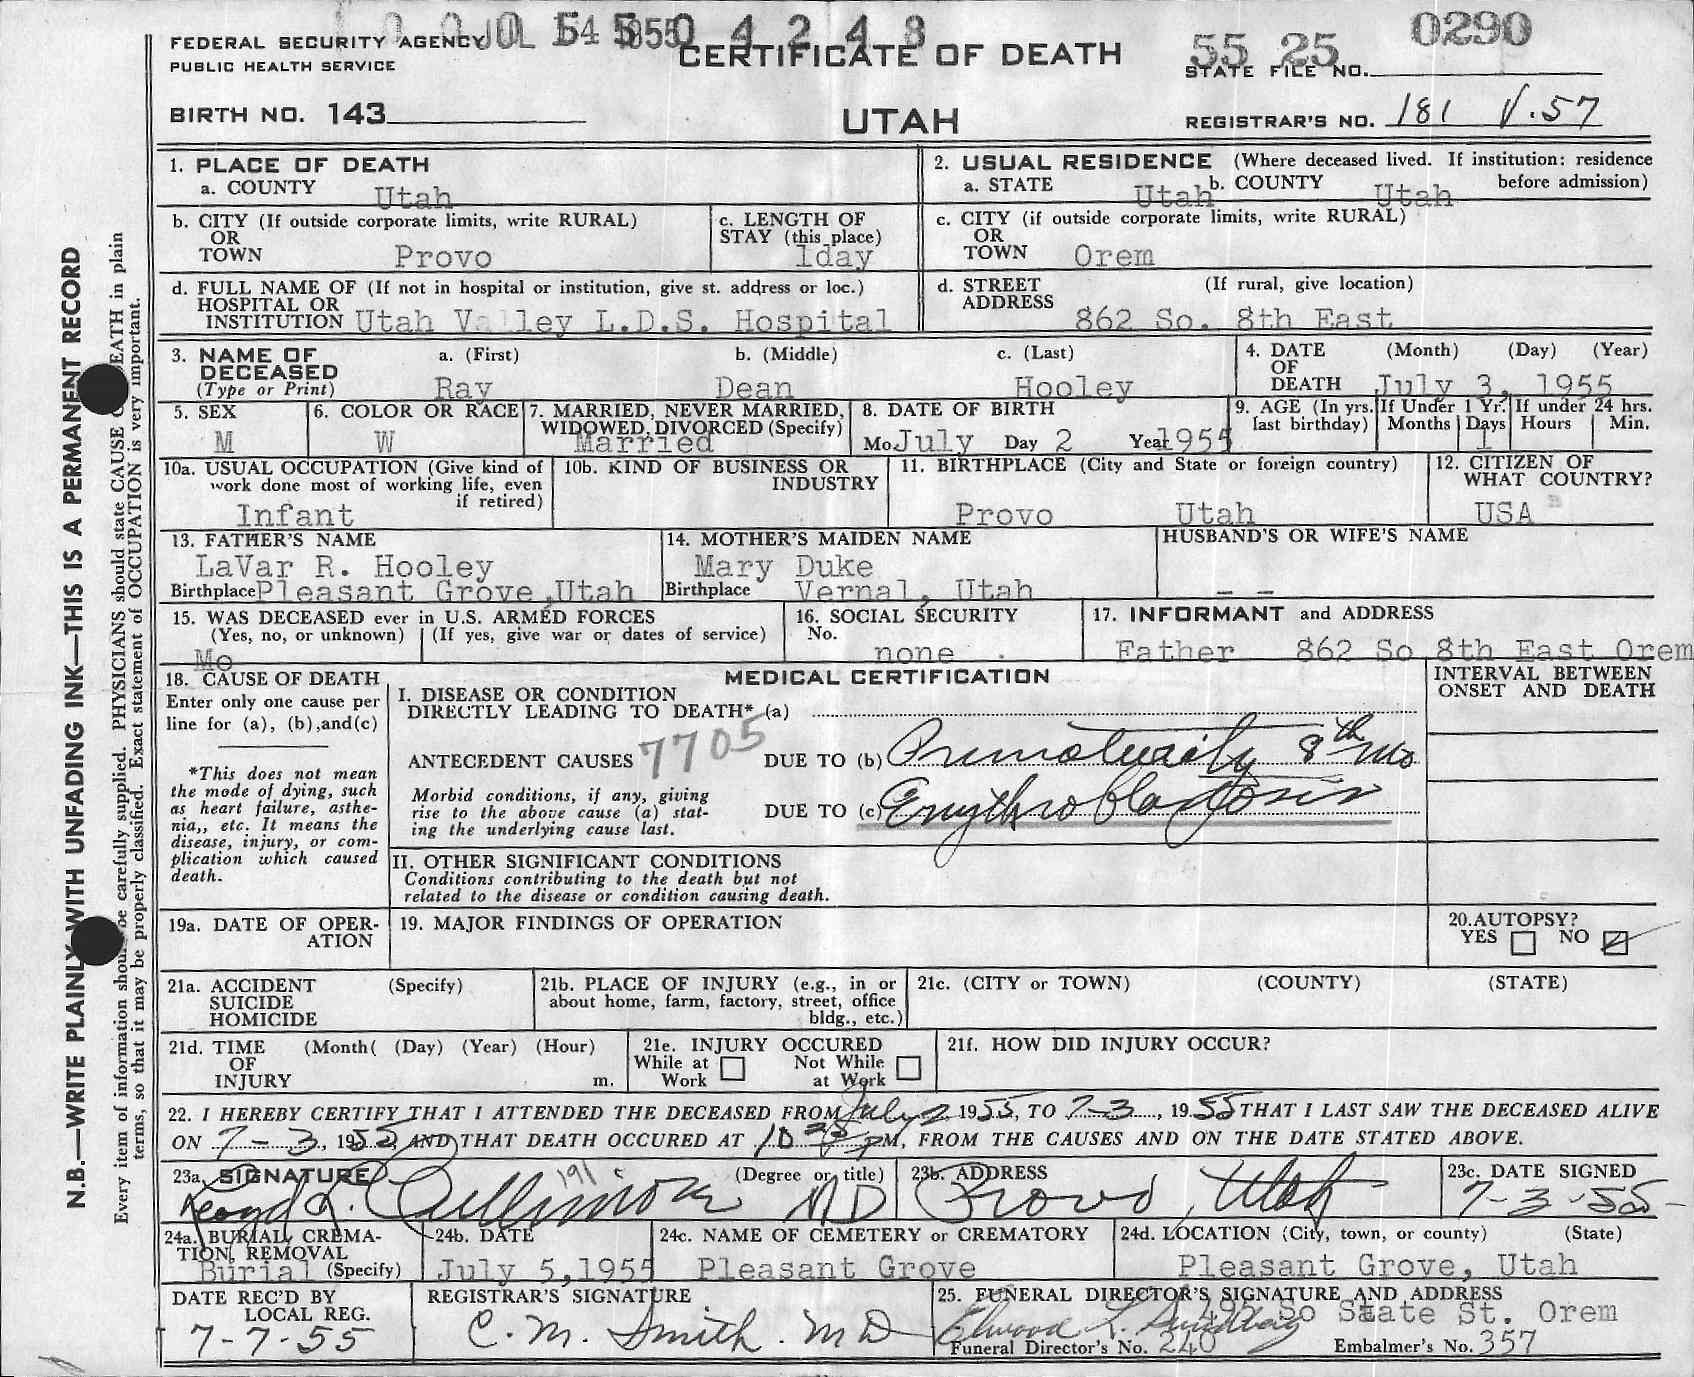 JUL 14 1955
5504243
0290
FEDERAL SECURITY AGENCY
PUBLIC HEALTH SERVICE
CERTIFICATE OF DEATH
55 25
STATE FILE NO.
BIRTH NO. 143
UTAH
REGISTRAR'S NO. 181 V.57
N.B.—WRITE PLAINLY WITH UNFADING INK—THIS IS A PERMANENT RECORD
Every item of information should be carefully supplied. PHYSICIANS should state CAUSE OF DEATH in plain
terms, so that it may be properly classified. Exact statement of OCCUPATION is very important.
1. PLACE OF DEATH
a. COUNTY Utah
2. USUAL RESIDENCE (Where deceased lived. If institution: residence before admission)
a. STATE Utah b. COUNTY Utah
b. CITY (If outside corporate limits, write RURAL)
OR
TOWN Provo
c. LENGTH OF
STAY (this place)
1day
c. CITY (if outside corporate limits, write RURAL)
OR
TOWN Orem
d. FULL NAME OF (If not in hospital or institution, give st. address or loc.)
HOSPITAL OR
INSTITUTION Utah Valley L.D.S. Hospital
d. STREET (If rural, give location)
ADDRESS
862 So. 8th East
3. NAME OF
DECEASED
(Type or Print)
a. (First) b. (Middle) c. (Last)
Ray Dean Hooley
4. DATE (Month) (Day) (Year)
OF
DEATH July 3, 1955
5. SEX
M
6. COLOR OR RACE
W
7. MARRIED, NEVER MARRIED,
WIDOWED, DIVORCED (Specify)
Married
8. DATE OF BIRTH
Mo. July Day 2 Year 1955
9. AGE (In yrs. last birthday)
If Under 1 Yr.
Months Days
1
If under 24 hrs.
Hours Min.
10a. USUAL OCCUPATION (Give kind of
work done most of working life, even
if retired)
Infant
10b. KIND OF BUSINESS OR
INDUSTRY
11. BIRTHPLACE (City and State or foreign country)
Provo Utah
12. CITIZEN OF
WHAT COUNTRY?
USA
13. FATHER'S NAME
LaVar R. Hooley
Birthplace Pleasant Grove, Utah
14. MOTHER'S MAIDEN NAME
Mary Duke
Birthplace Vernal, Utah
HUSBAND'S OR WIFE'S NAME
– –
15. WAS DECEASED ever in U.S. ARMED FORCES
(Yes, no, or unknown) (If yes, give war or dates of service)
Mo
16. SOCIAL SECURITY
No.
none
17. INFORMANT and ADDRESS
Father 862 So 8th East Orem
18. CAUSE OF DEATH
Enter only one cause per
line for (a), (b),and(c)
*This does not mean
the mode of dying, such
as heart failure, asthe-
nia,, etc. It means the
disease, injury, or com-
plication which caused
death.
MEDICAL CERTIFICATION
INTERVAL BETWEEN
ONSET AND DEATH
I. DISEASE OR CONDITION
DIRECTLY LEADING TO DEATH* (a)
ANTECEDENT CAUSES 7705 DUE TO (b) Prematurity 8th Mo
Morbid conditions, if any, giving
rise to the above cause (a) stat-
ing the underlying cause last.
DUE TO (c) Erythroblastosis
II. OTHER SIGNIFICANT CONDITIONS
Conditions contributing to the death but not
related to the disease or condition causing death.
19a. DATE OF OPER-
ATION
19. MAJOR FINDINGS OF OPERATION
20.AUTOPSY?
YES NO
21a. ACCIDENT (Specify)
SUICIDE
HOMICIDE
21b. PLACE OF INJURY (e.g., in or
about home, farm, factory, street, office
bldg., etc.)
21c. (CITY or TOWN) (COUNTY) (STATE)
21d. TIME (Month( (Day) (Year) (Hour)
OF
INJURY m.
21e. INJURY OCCURED
While at Work Not While at Work
21f. HOW DID INJURY OCCUR?
22. I HEREBY CERTIFY THAT I ATTENDED THE DECEASED FROM July 2 1955, TO 7-3, 1955 THAT I LAST SAW THE DECEASED ALIVE
ON 7-3, 1955 AND THAT DEATH OCCURED AT 10 PM, FROM THE CAUSES AND ON THE DATE STATED ABOVE.
23a. SIGNATURE (Degree or title)
Lloyd L. Cullimore MD
191
23b. ADDRESS
Provo, Utah
23c. DATE SIGNED
7-3-55
24a. BURIAL, CREMA-
TION, REMOVAL
Burial (Specify)
24b. DATE
July 5,1955
24c. NAME OF CEMETERY or CREMATORY
Pleasant Grove
24d. LOCATION (City, town, or county) (State)
Pleasant Grove, Utah
DATE REC'D BY
LOCAL REG.
7-7-55
REGISTRAR'S SIGNATURE
C. M. Smith. MD
25. FUNERAL DIRECTOR'S SIGNATURE AND ADDRESS
495 So State St. Orem
Elwood L. Sundberg
Funeral Director's No. 240 Embalmer's No. 357